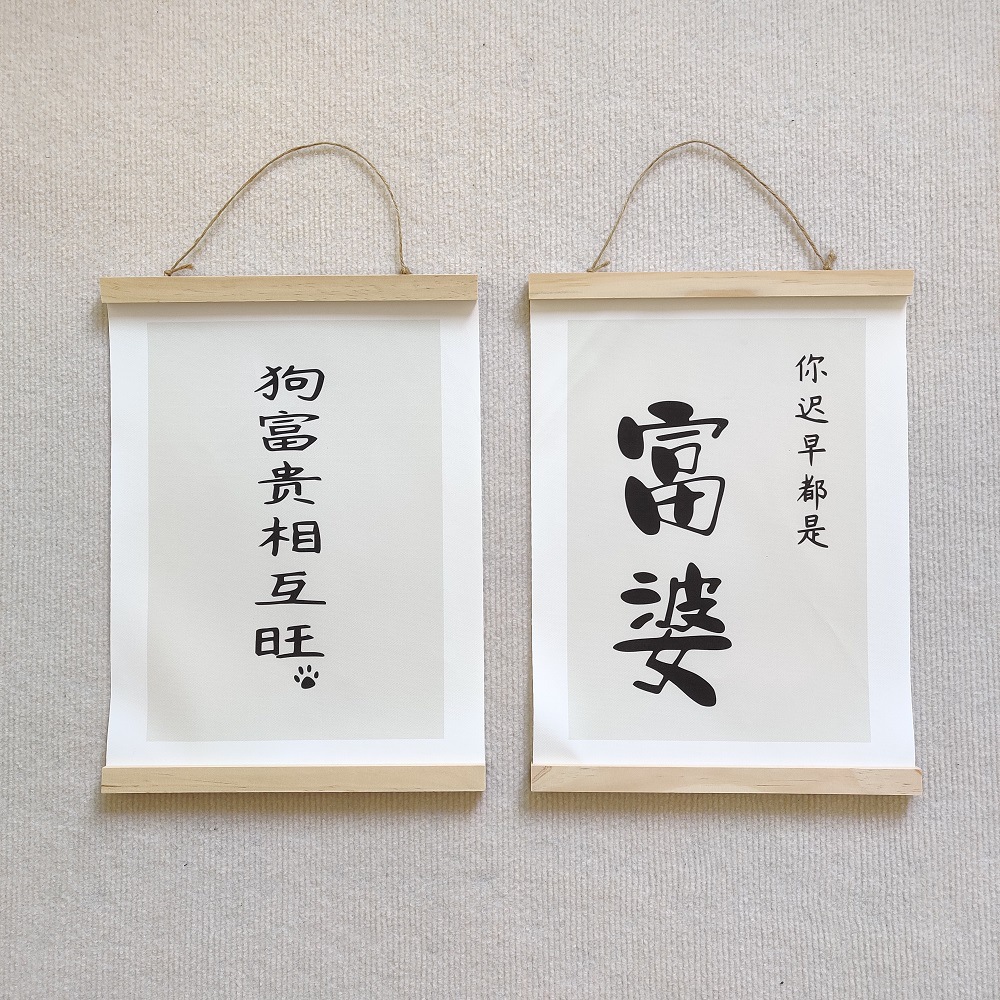 狗富贵相互旺
你迟早都是
富婆